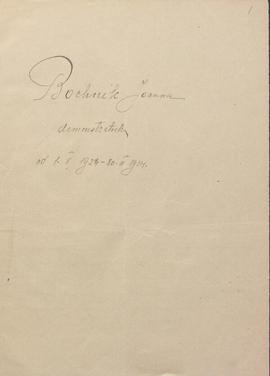 1
Bochnik Joanna
demonstratork
od 1. X 1928 - 30. II 1931.